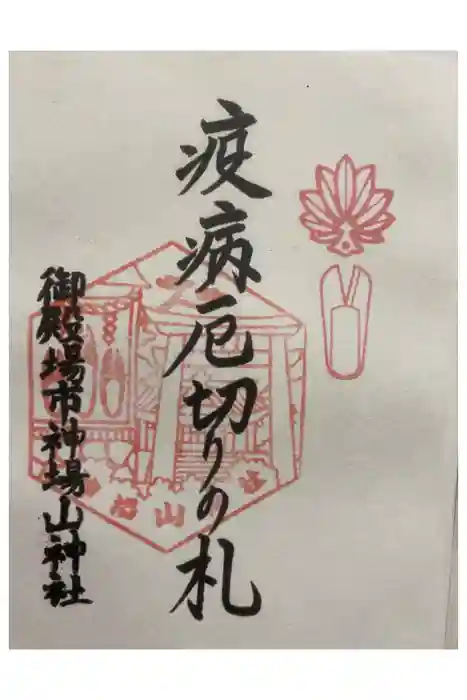 疫病厄切りの札
御殿場市神場山神社